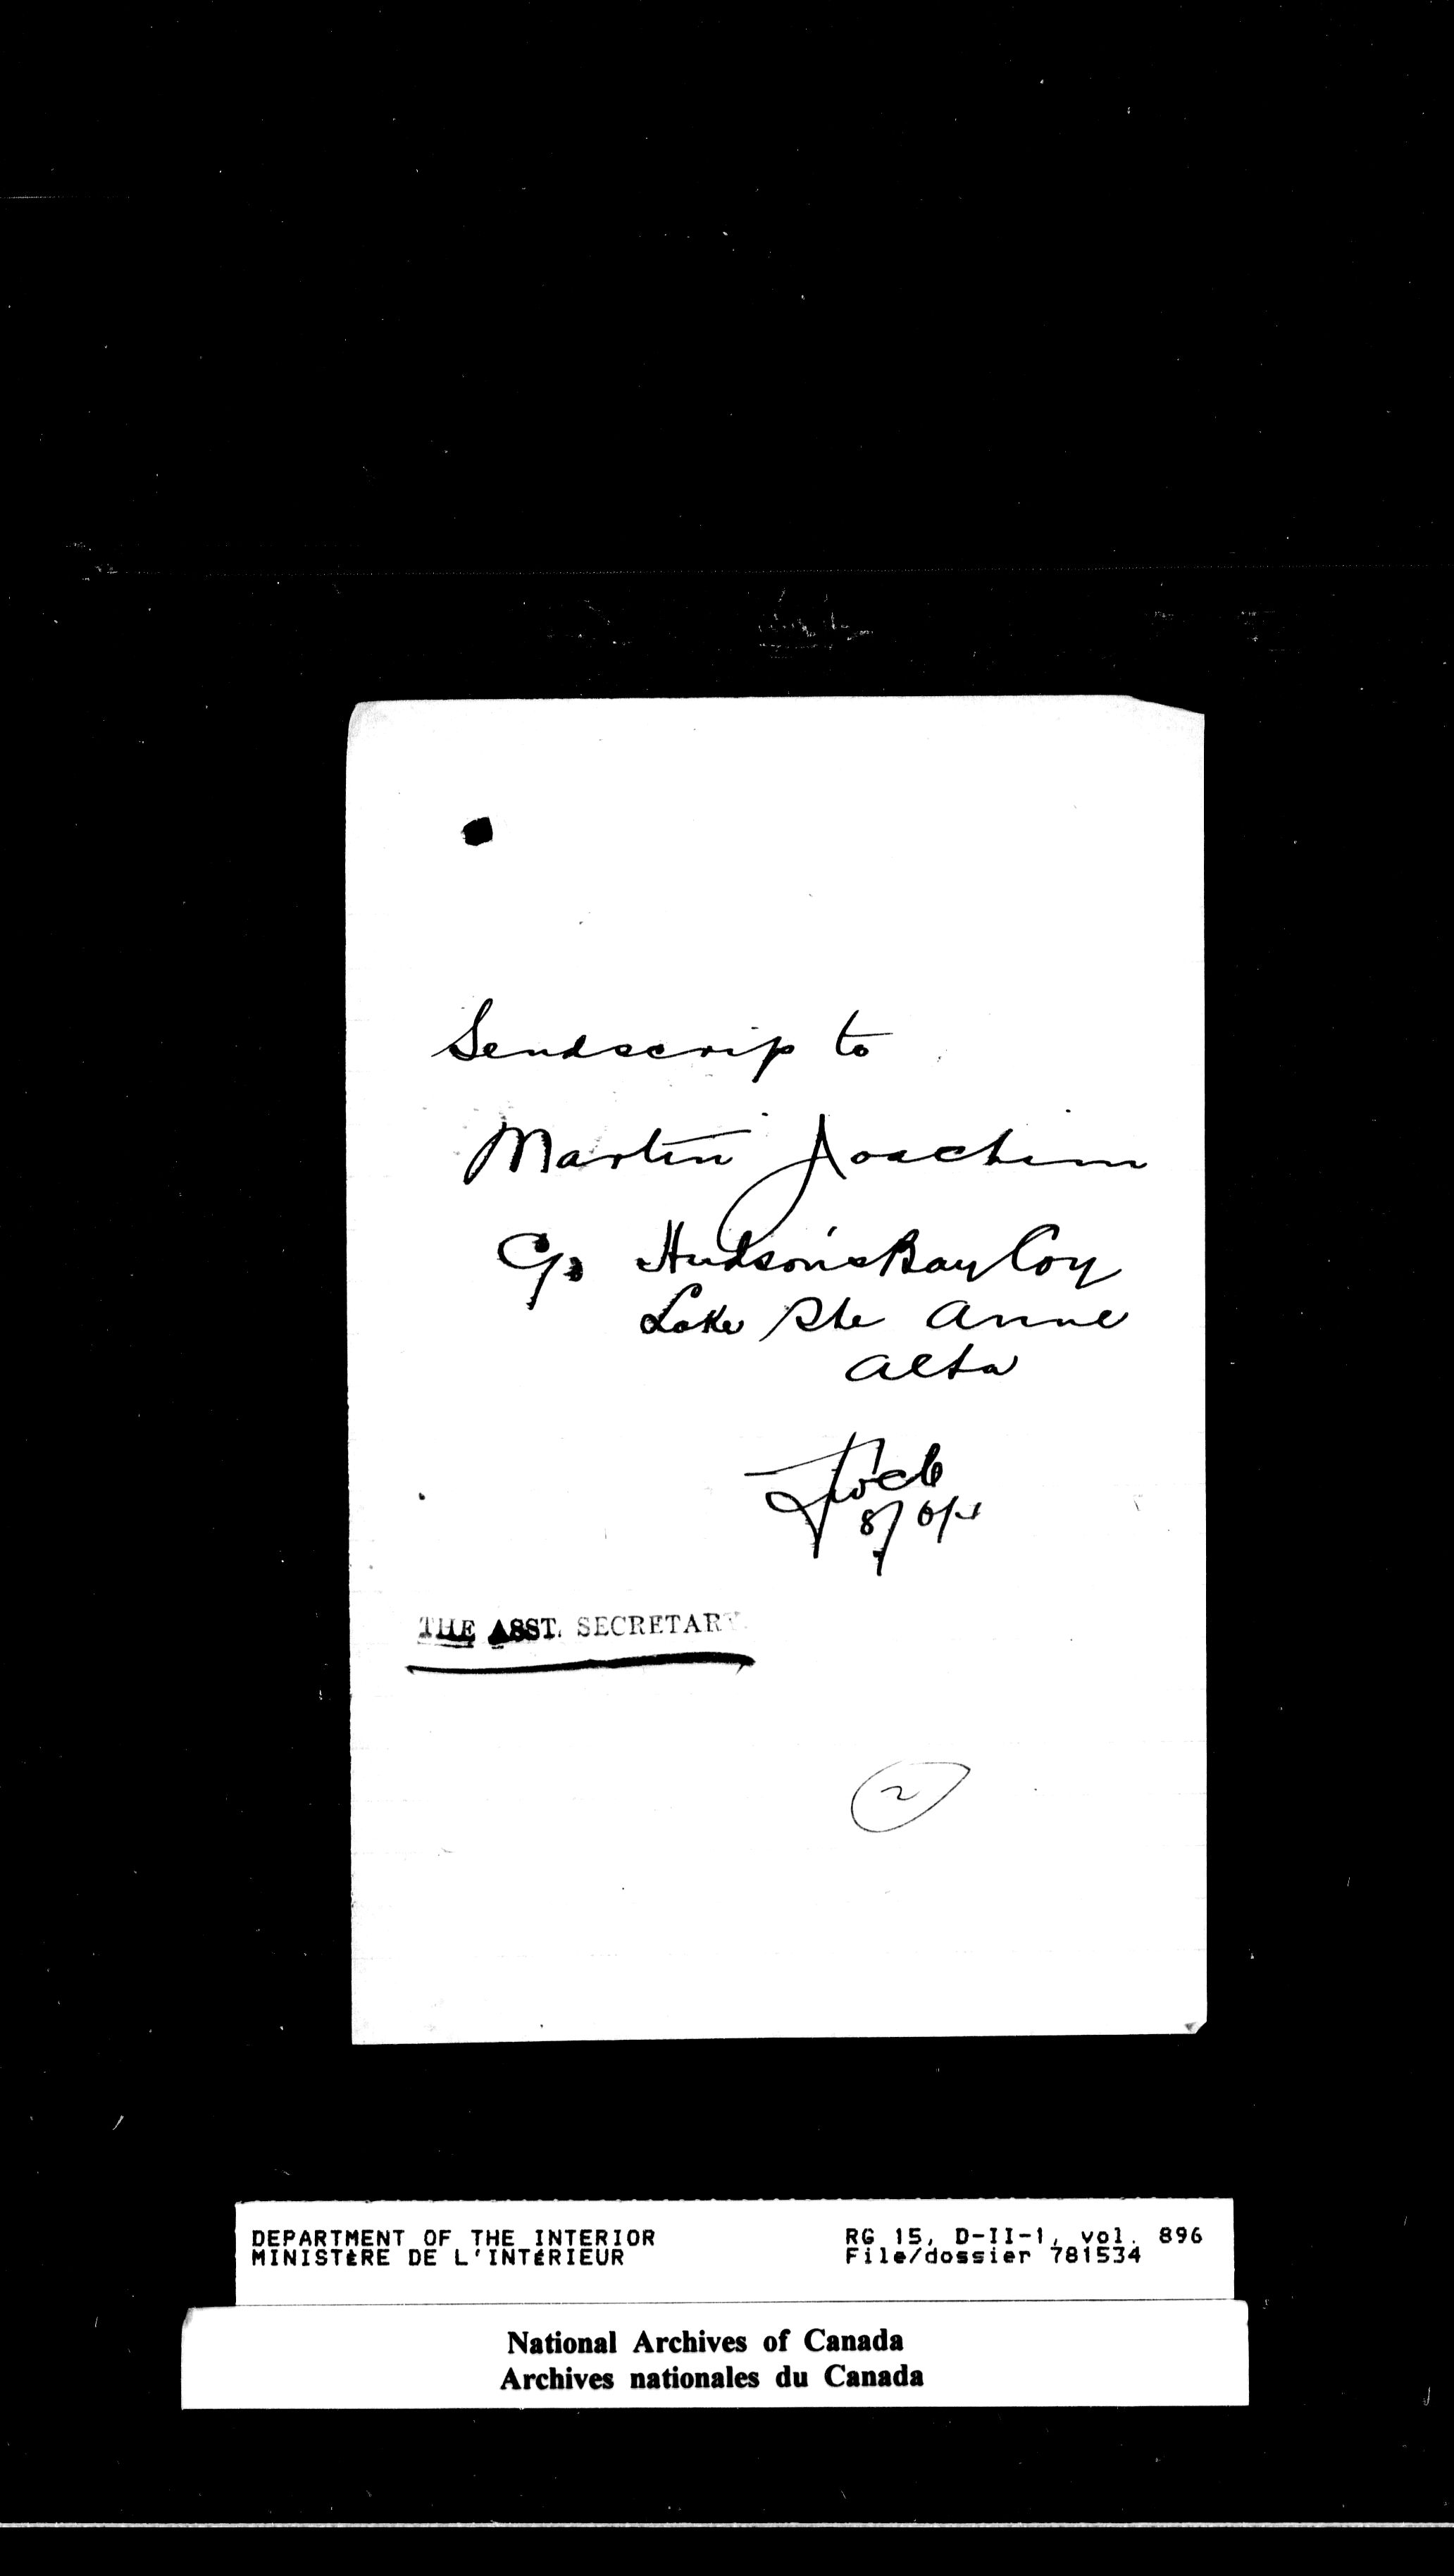 Send scrip to
Martin Joachim
C/o Hudson's Bay Coy
Lake Ste Anne
Alta
THE ASST. SECRETARY.
2
DEPARTMENT OF THE INTERIOR RG 15, D-II-1, vol. 896
MINISTÈRE DE L'INTÉRIEUR File/dossier 781534
National Archives of Canada
Archives nationales du Canada